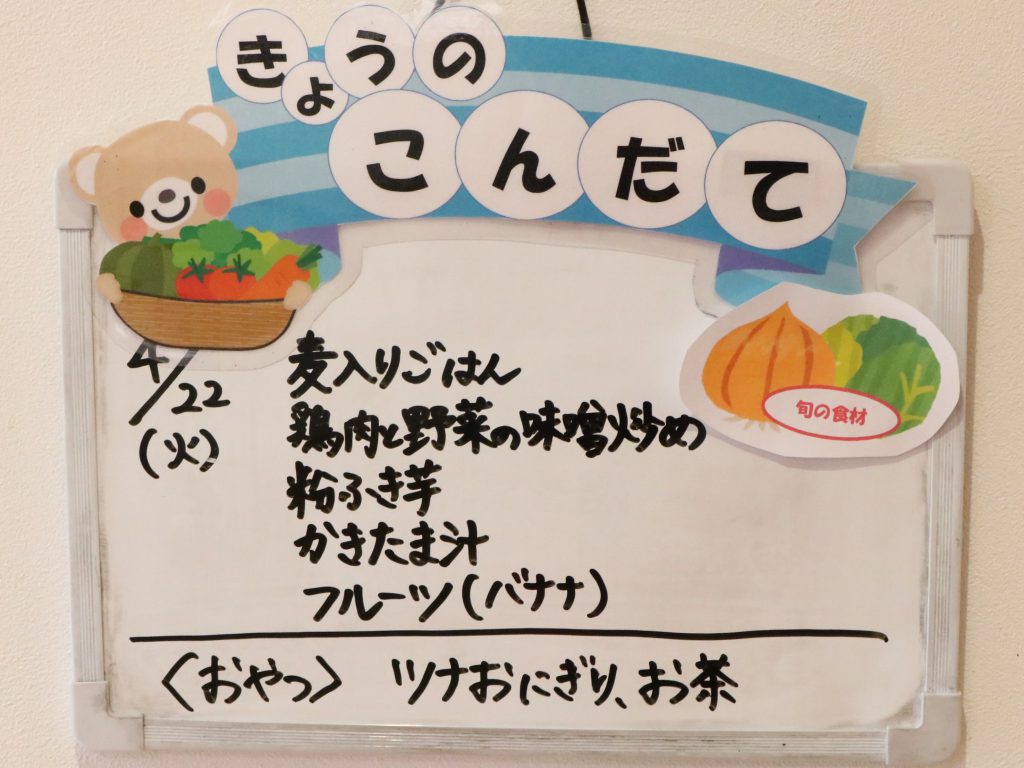 きょうの
こんだて
旬の食材
4/22
(火)
麦入りごはん
鶏肉と野菜の味噌炒め
粉ふき芋
かきたま汁
フルーツ(バナナ)
〈おやつ〉 ツナおにぎり、お茶